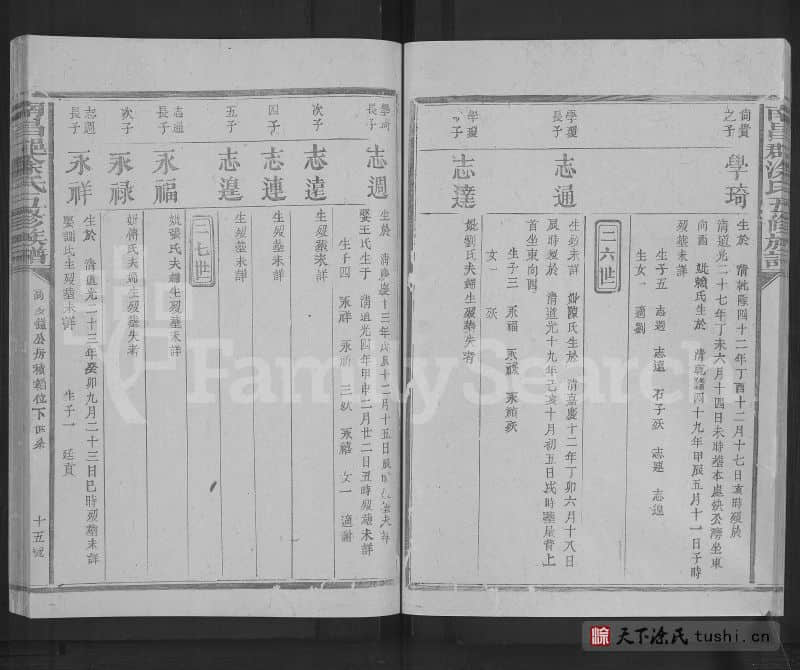 尙貴
之子
學琦
生於 清乾隆四十二年丁酉十二月十七日亥時歿於
清道光二十七年丁未六月十四日未時塟本處
坐東
向西 妣賴氏生於 清乾隆四十九年甲辰五月十一日子時
歿塟未詳
生子五 志週 志遠 石子殀 志連 志遑
生女一 適劉
三六世
學理
長子
志通
生歿未詳 妣陳氏生於 清嘉慶十二年丁卯六月十八日
辰時歿於 清道光十九年己亥十月初五日戌時塟
上
首坐東向西
生子三 永福 永祿 永
殀
女一 殀
學理
子
志達
妣劉氏夫婦生歿塟失考
學琦
長子
志週
生於 清嘉慶十三年戊辰十二月十五日辰時
未詳
娶王氏生於 清道光四年甲申二月廿二日丑時歿塟未詳
生子四 永祥
永禧 女一 適謝
次子
志遠
生歿塟未詳
四子
志連
生歿塟未詳
五子
志遑
生歿塟未詳
三七世
志通
長子
永福
妣張氏夫婦生歿塟未詳
次子
永祿
妣傅氏夫婦生歿塟失考
志週
長子
永祥
生於 清道光二十三年癸卯九月二十三日巳時歿塟未詳
娶謝氏生歿塟未詳 生子一 廷貢
十五號
FamilySearch
天下涂氏 tushi.cn